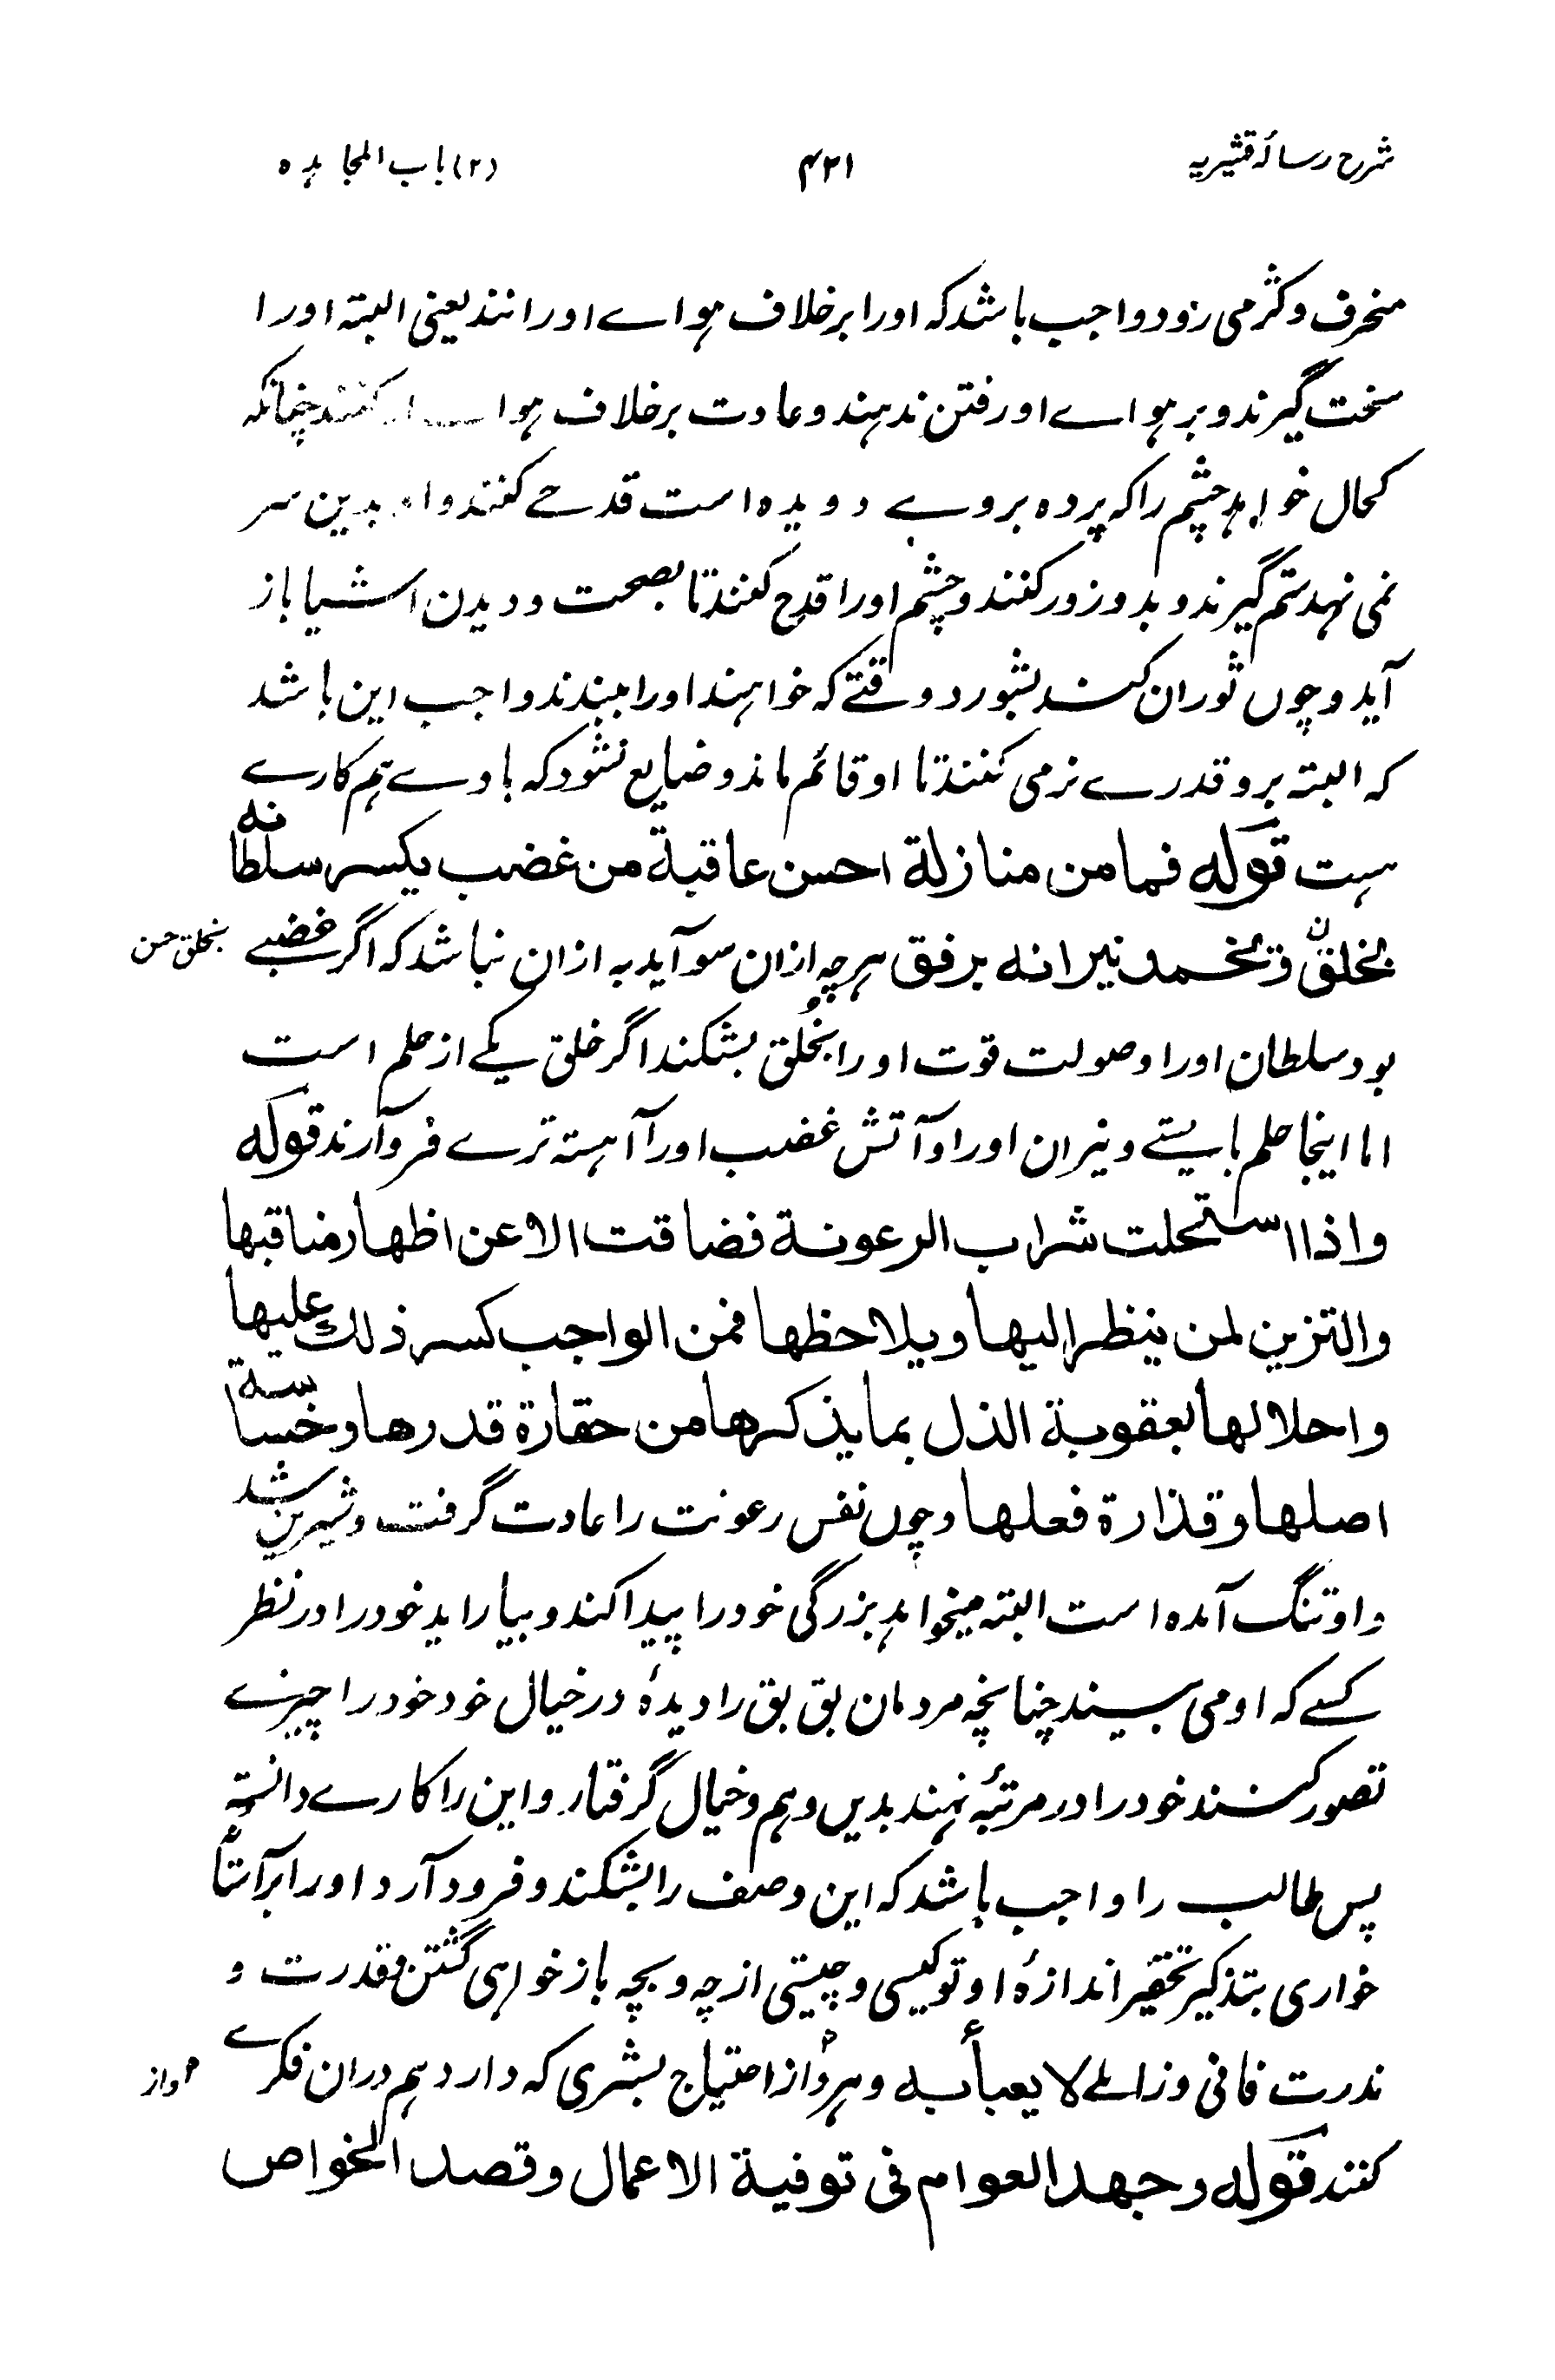 شرح رسالۂ قشیریہ ۴۲۱ (۲) باب المجاہدہ
منحرف و کژ می رود واجب باشد کہ اورا برخلاف ہواے او رانند یعنی البتہ اورا
سخت گیرند و بر ہواے او رفتن ندہند و عادت برخلاف ہواے او کنند چنانکہ
کحال خواہد چشم را کہ پردہ بروے دویدہ است قدحے کنند و او بدین سر
نمی نہد ستم گیرند و بدو زور کنند و چشم اورا قدح کنند تا بصحت و دیدن اشیا باز
آید و چوں ثوران کند بشورد وقتے کہ خواہند اورا ببندند واجب این باشد
کہ البتہ برو قدرے نرمی کنند تا او قائم ماند و ضایع نشود کہ باوے ہم کارے
ہست قولہ فما من منازلة احسن عاقبة من غضب یکسر سلطانه
بخلق و تخمد نیرانه برفق ہرچہ ازان سو آید بہ ازان نباشد کہ اگر غضبے
بخلق حسن
بود سلطان اورا و صولت قوت اورا بخُلق بشکند اگر خلق یکے از حلم است
اما اینجا حلم بایستے و نیران اورا و آتش غضب اورا آہستہ ترے فرو آرند قولہ
واذا استحلت شراب الرعونة فضاقت الا عن اظهار مناقبها
والتزین لمن ینظر الیها ویلاحظها فمن الواجب کسر ذلک علیها
واحلالها بعقوبة الذل بما یذکرها من حقارة قدرها وخساسة
اصلها وقذارة فعلها و چوں نفس رعونت را عادت گرفت و شیرین شد
و او تنگ آمدہ است البتہ میخواہد بزرگی خود را پیدا کند و بیاراید خود را در نظر
کسے کہ او می بیند چنانچہ مردمان بق بق را دیدۂ در خیال خود خود را چیزے
تصور کنند خود را در مرتبۂ نہند بدیں وہم و خیال گرفتار و این را کارے دانستہ
پس طالب را واجب باشد کہ این وصف را بشکند و فرود آرد اورا بر آستانۂ
خواری بتذکیر تحقیر اندازۂ او تو کیسی و چیستی از چہ و بچہ باز خواہی گشتن و قدرت و
ندرت فانی و زایلے لا یعبأ به و ہر دو از احتیاج بشری کہ دارد ہم دران فکرے
م واز
کنند قولہ وجهد العوام فی توفیة الاعمال وقصد الخواص